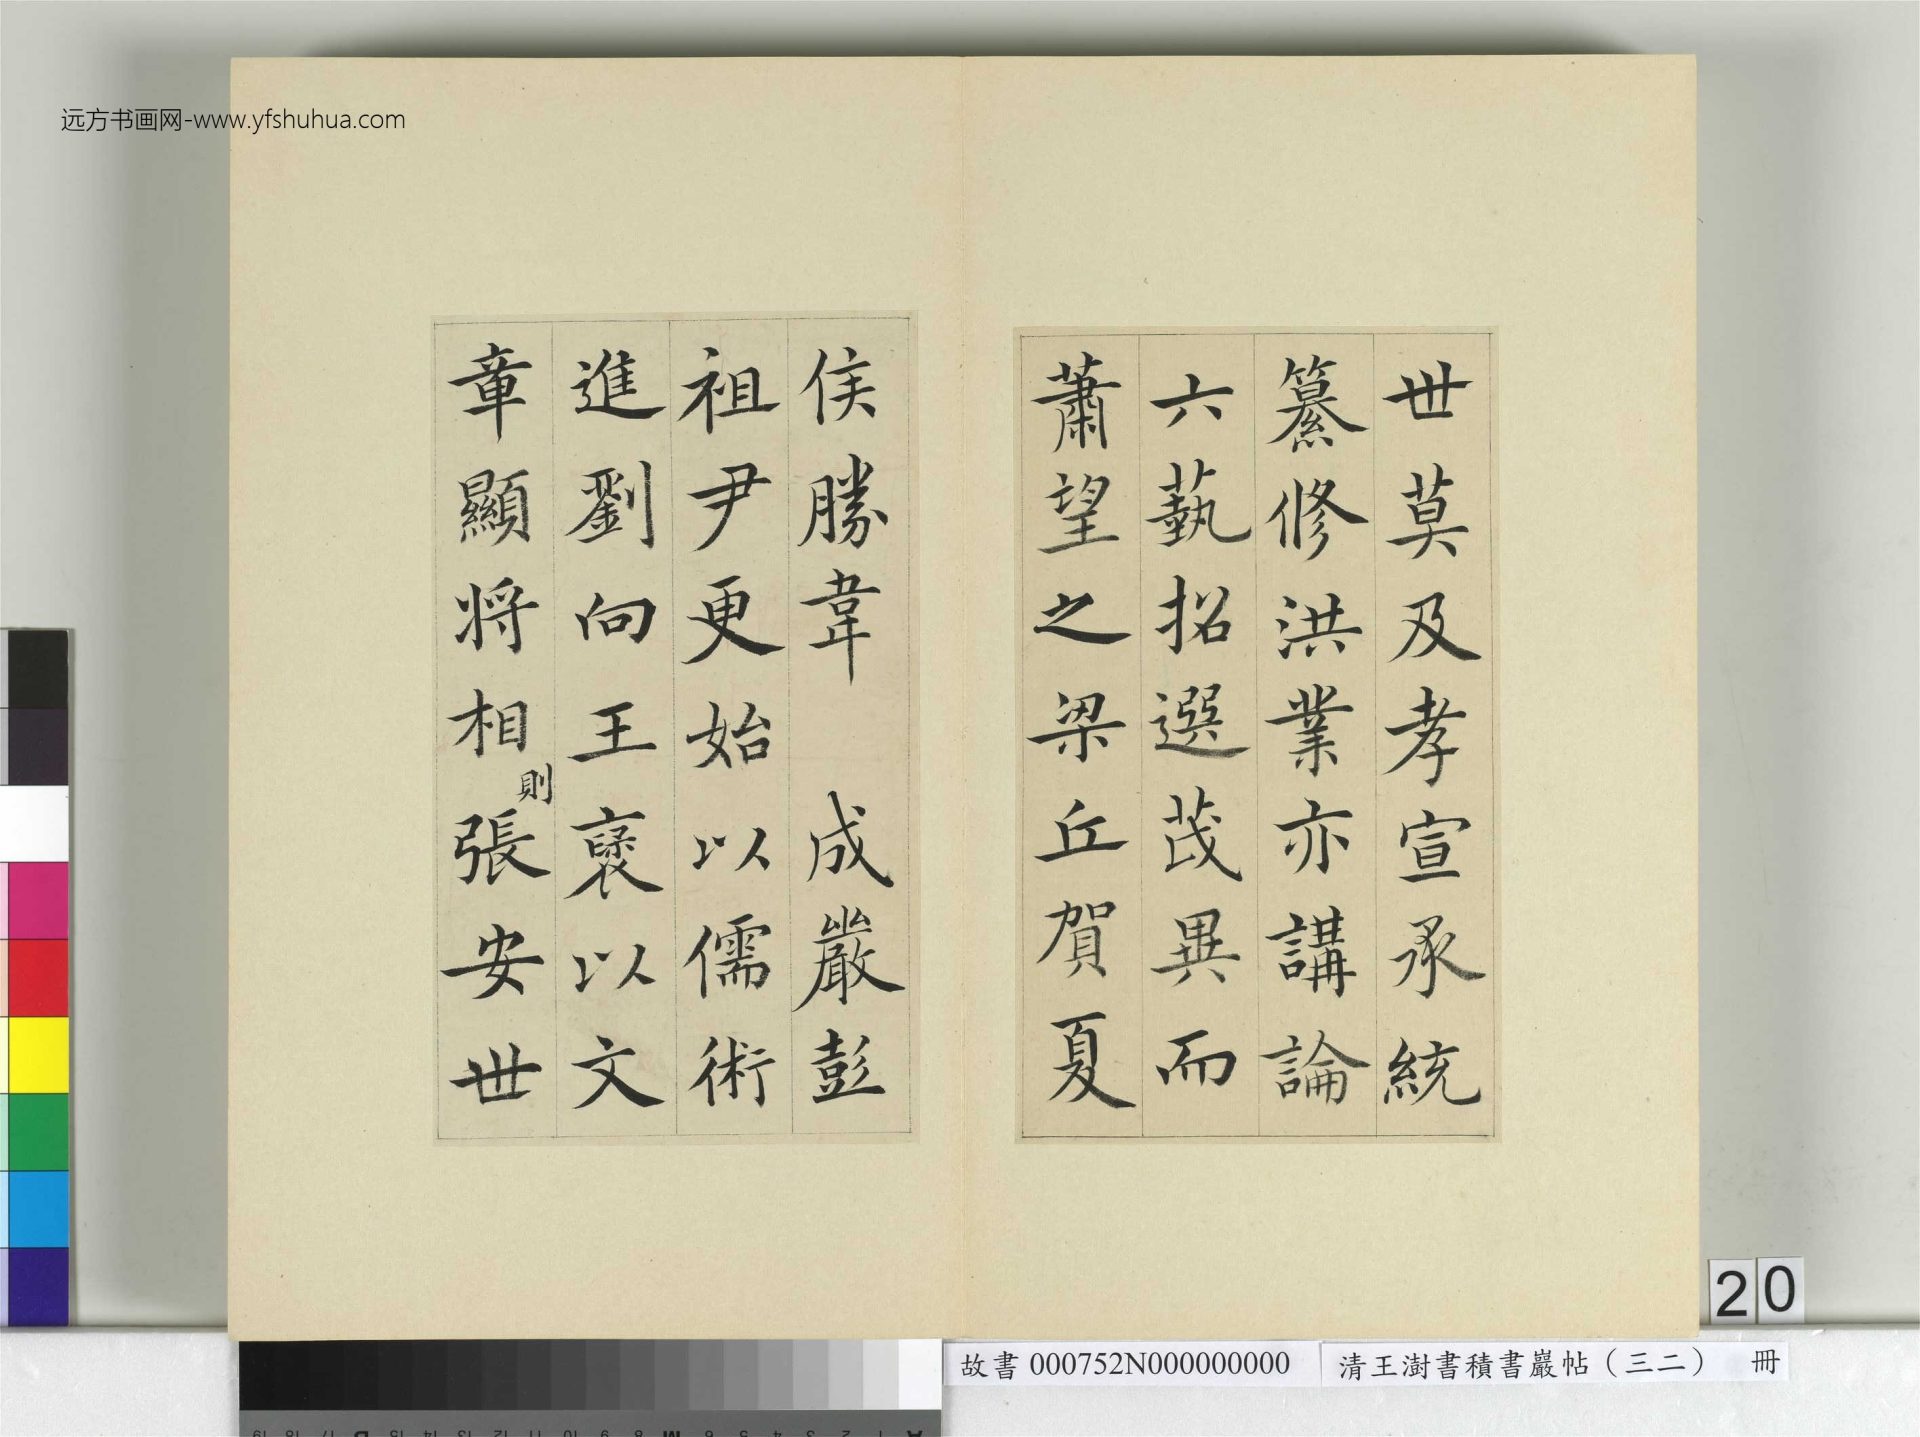 远方书画网-www.yfshuhua.com
世莫及孝宣承統
纂修洪業亦講論
六藝招選茂異而
蕭望之梁丘賀夏
侯勝韋 成嚴彭
祖尹更始以儒術
進劉向王襃以文
章顯將相張安世
則
20
故書 000752N000000000
清王澍書積書巖帖（三二） 冊